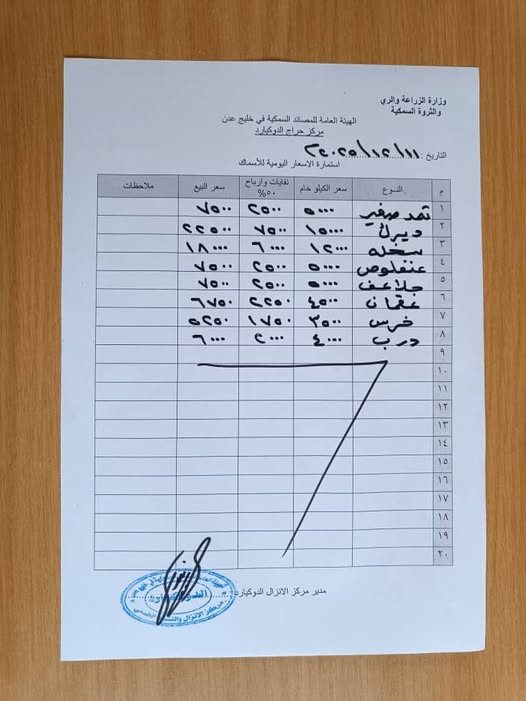 وزارة الزراعة والري
والثروة السمكية
الهيئة العامة للمصائد السمكية في خليج عدن
مركز حراج الدوكيارد
التاريخ : ١١/١٢/٢٠٢٥م
استمارة الاسعار اليومية للأسماك
م النوع سعر الكيلو خام نفايات وارباح ٥٠% سعر البيع ملاحظات
١ ثمد صغير ٥٠٠٠ ٢٥٠٠ ٧٥٠٠
٢ ديرك ١٥٠٠٠ ٧٥٠٠ ٢٢٥٠٠
٣ سخله ١٢٠٠٠ ٦٠٠٠ ١٨٠٠٠
٤ عنفلوص ٥٠٠٠ ٢٥٠٠ ٧٥٠٠
٥ جلاعف ٥٠٠٠ ٢٥٠٠ ٧٥٠٠
٦ عقمان ٤٥٠٠ ٢٢٥٠ ٦٧٥٠
٧ خرس ٣٥٠٠ ١٧٥٠ ٥٢٥٠
٨ درب ٤٠٠٠ ٢٠٠٠ ٦٠٠٠
٩
١٠
١١
١٢
١٣
١٤
١٥
١٦
١٧
١٨
١٩
٢٠
مدير مركز الانزال الدوكيارد :
مركز الانزال